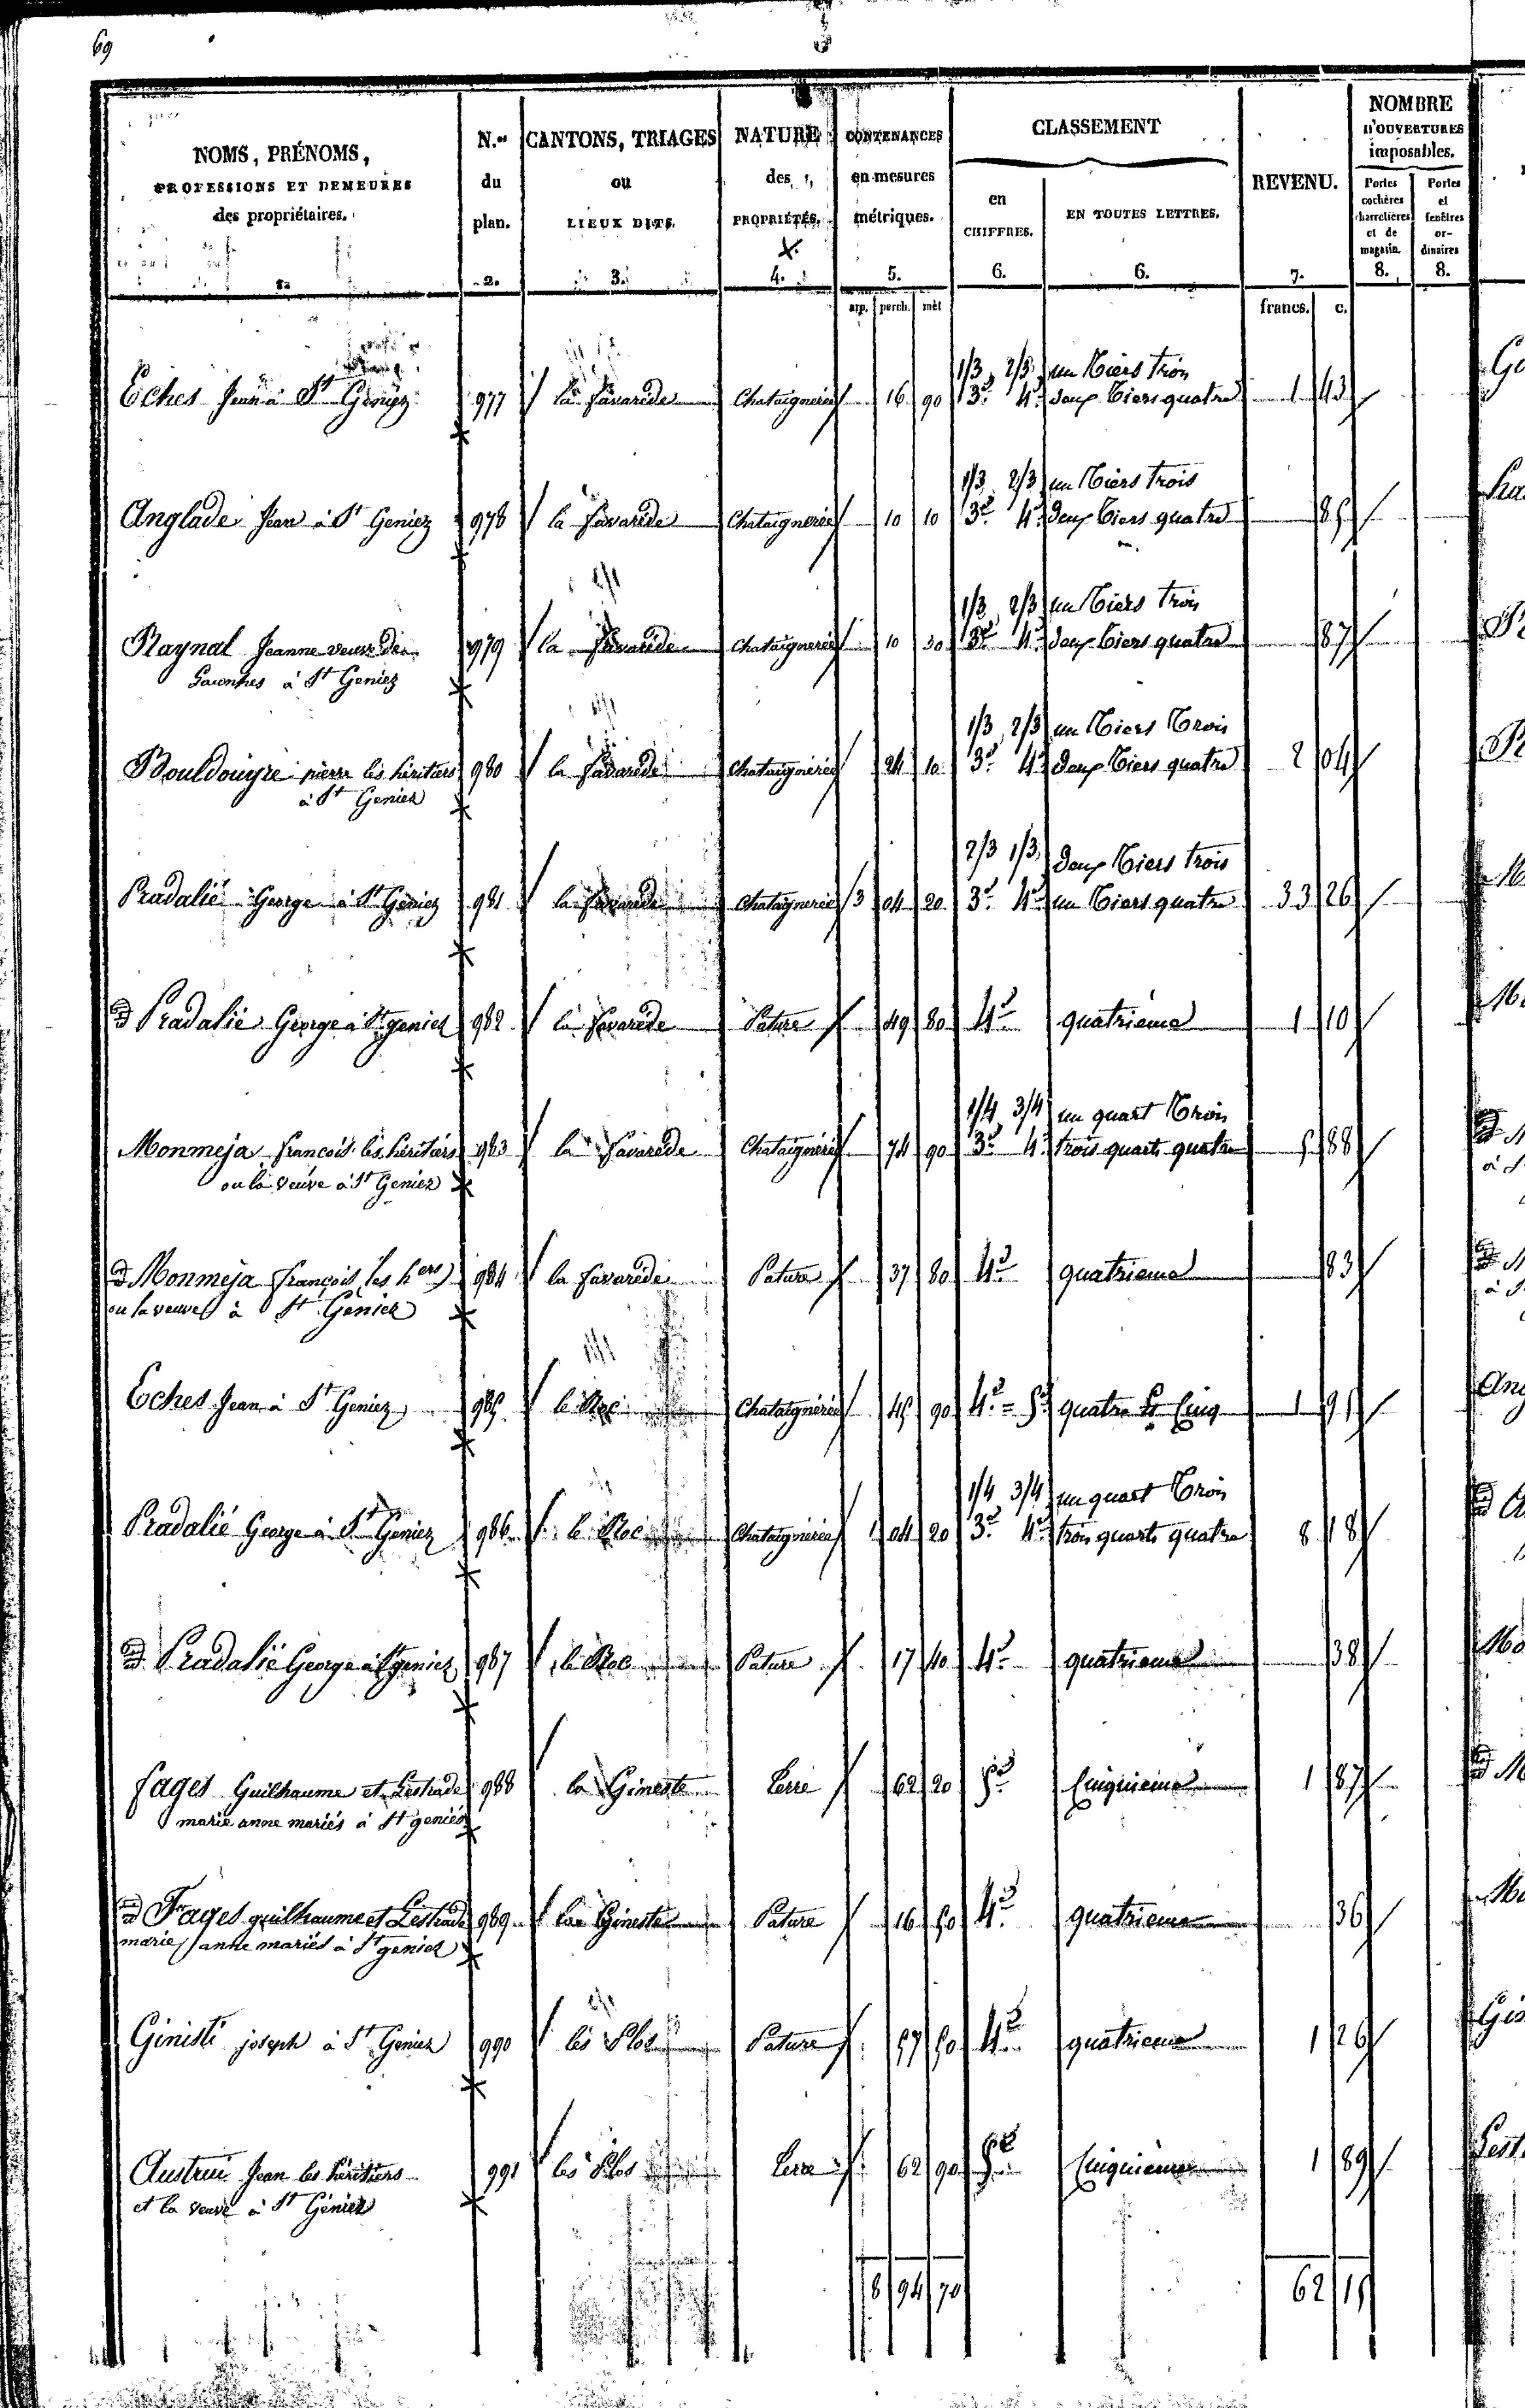 69
NOMS, PRÉNOMS,
PROFESSIONS ET DEMEURES
des propriétaires.
1.
N.os
du
plan.
2.
CANTONS, TRIAGES
ou
LIEUX DITS.
3.
NATURE
des
PROPRIÉTÉS.
4.
CONTENANCES
en mesures
métriques.
5.
arp. perch. mèt
CLASSEMENT
en
CHIFFRES.
6.
EN TOUTES LETTRES.
6.
REVENU.
7.
francs. c.
NOMBRE
D'OUVERTURES
imposables.
Portes
cochères
charretières
et de
magasin.
8.
Portes
et
fenêtres
or-
dinaires
8.
1/3 2/3 un tiers trois
Eches Jean à St Geniez 977 la favarède Chataigneraie 16 90 3e 4e deux tiers quatre 1 43
1/3 2/3 un tiers trois
Anglade Jean à St Geniez 978 la favarède Chataigneraie 10 10 3e 4e deux tiers quatre 85
1/3 2/3 un tiers trois
Raynal Jeanne veuve de 979 la favarède Chataigneraie 10 30 3e 4e deux tiers quatre 87
à St Geniez
1/3 2/3 un tiers trois
Bouldouyre pierre les héritiers 980 la favarède Chataigneraie 24 10 3e 4e deux tiers quatre 2 04
à St Geniez
2/3 1/3 deux tiers trois
Pradalié George à St Geniez 981 la favarède Chataigneraie 3 04 20 3e 4e un tiers quatre 33 26
d Pradalié George à St geniez 982 la favarède Pature 49 80 4e quatrieme 1 10
1/4 3/4 un quart trois
Monmeja francois les héritiers 983 la favarède Chataigneraie 74 90 3e 4e trois quarts quatre 5 88
ou la veuve à St Geniez
d Monmeja françois les hers 984 la favarède Pature 37 80 4e quatrieme 83
ou la veuve à St Geniez
Eches Jean à St Geniez 985 le Roc Chataigneraie 45 90 4e = 5e quatre Et Cinq 1 91
1/4 3/4 un quart trois
Pradalié George à St Geniez 986 le Roc Chataigneraie 1 04 20 3e 4e trois quarts quatre 8 18
d Pradalié George à St geniez 987 le Roc Pature 17 40 4e quatrieme 38
fages Guilhaume et Lestrade 988 la Gineste terre 62 20 5e Cinquieme 1 87
marie anne mariés à St geniés
d Fages guilhaume et Lestrade 989 la Gineste Pature 16 50 4e quatrieme 36
marie anne mariés à St geniez
Ginisti joseph à St Geniez 990 les Plos Pature 57 50 4e quatrieme 1 26
Austrui Jean les héritiers 991 les Plos terre 62 90 5e Cinquieme 1 89
et la veuve à St Geniez
8 94 70 62 11